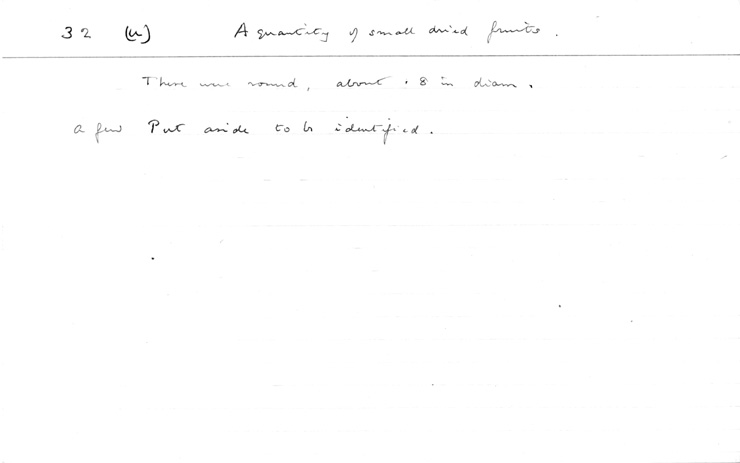 32 (u) A quantity of small dried fruits.
These were round, about .8 in diam.
a few Put aside to be identified.